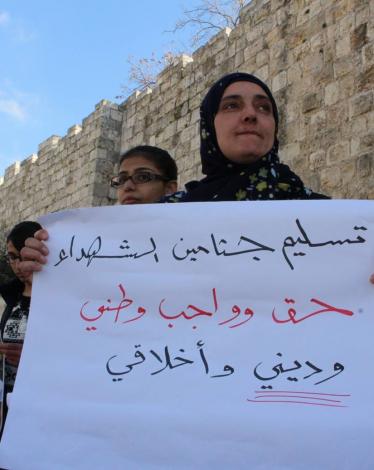 تسليم جثامين الشهداء
حق وواجب وطني
وديني وأخلاقي